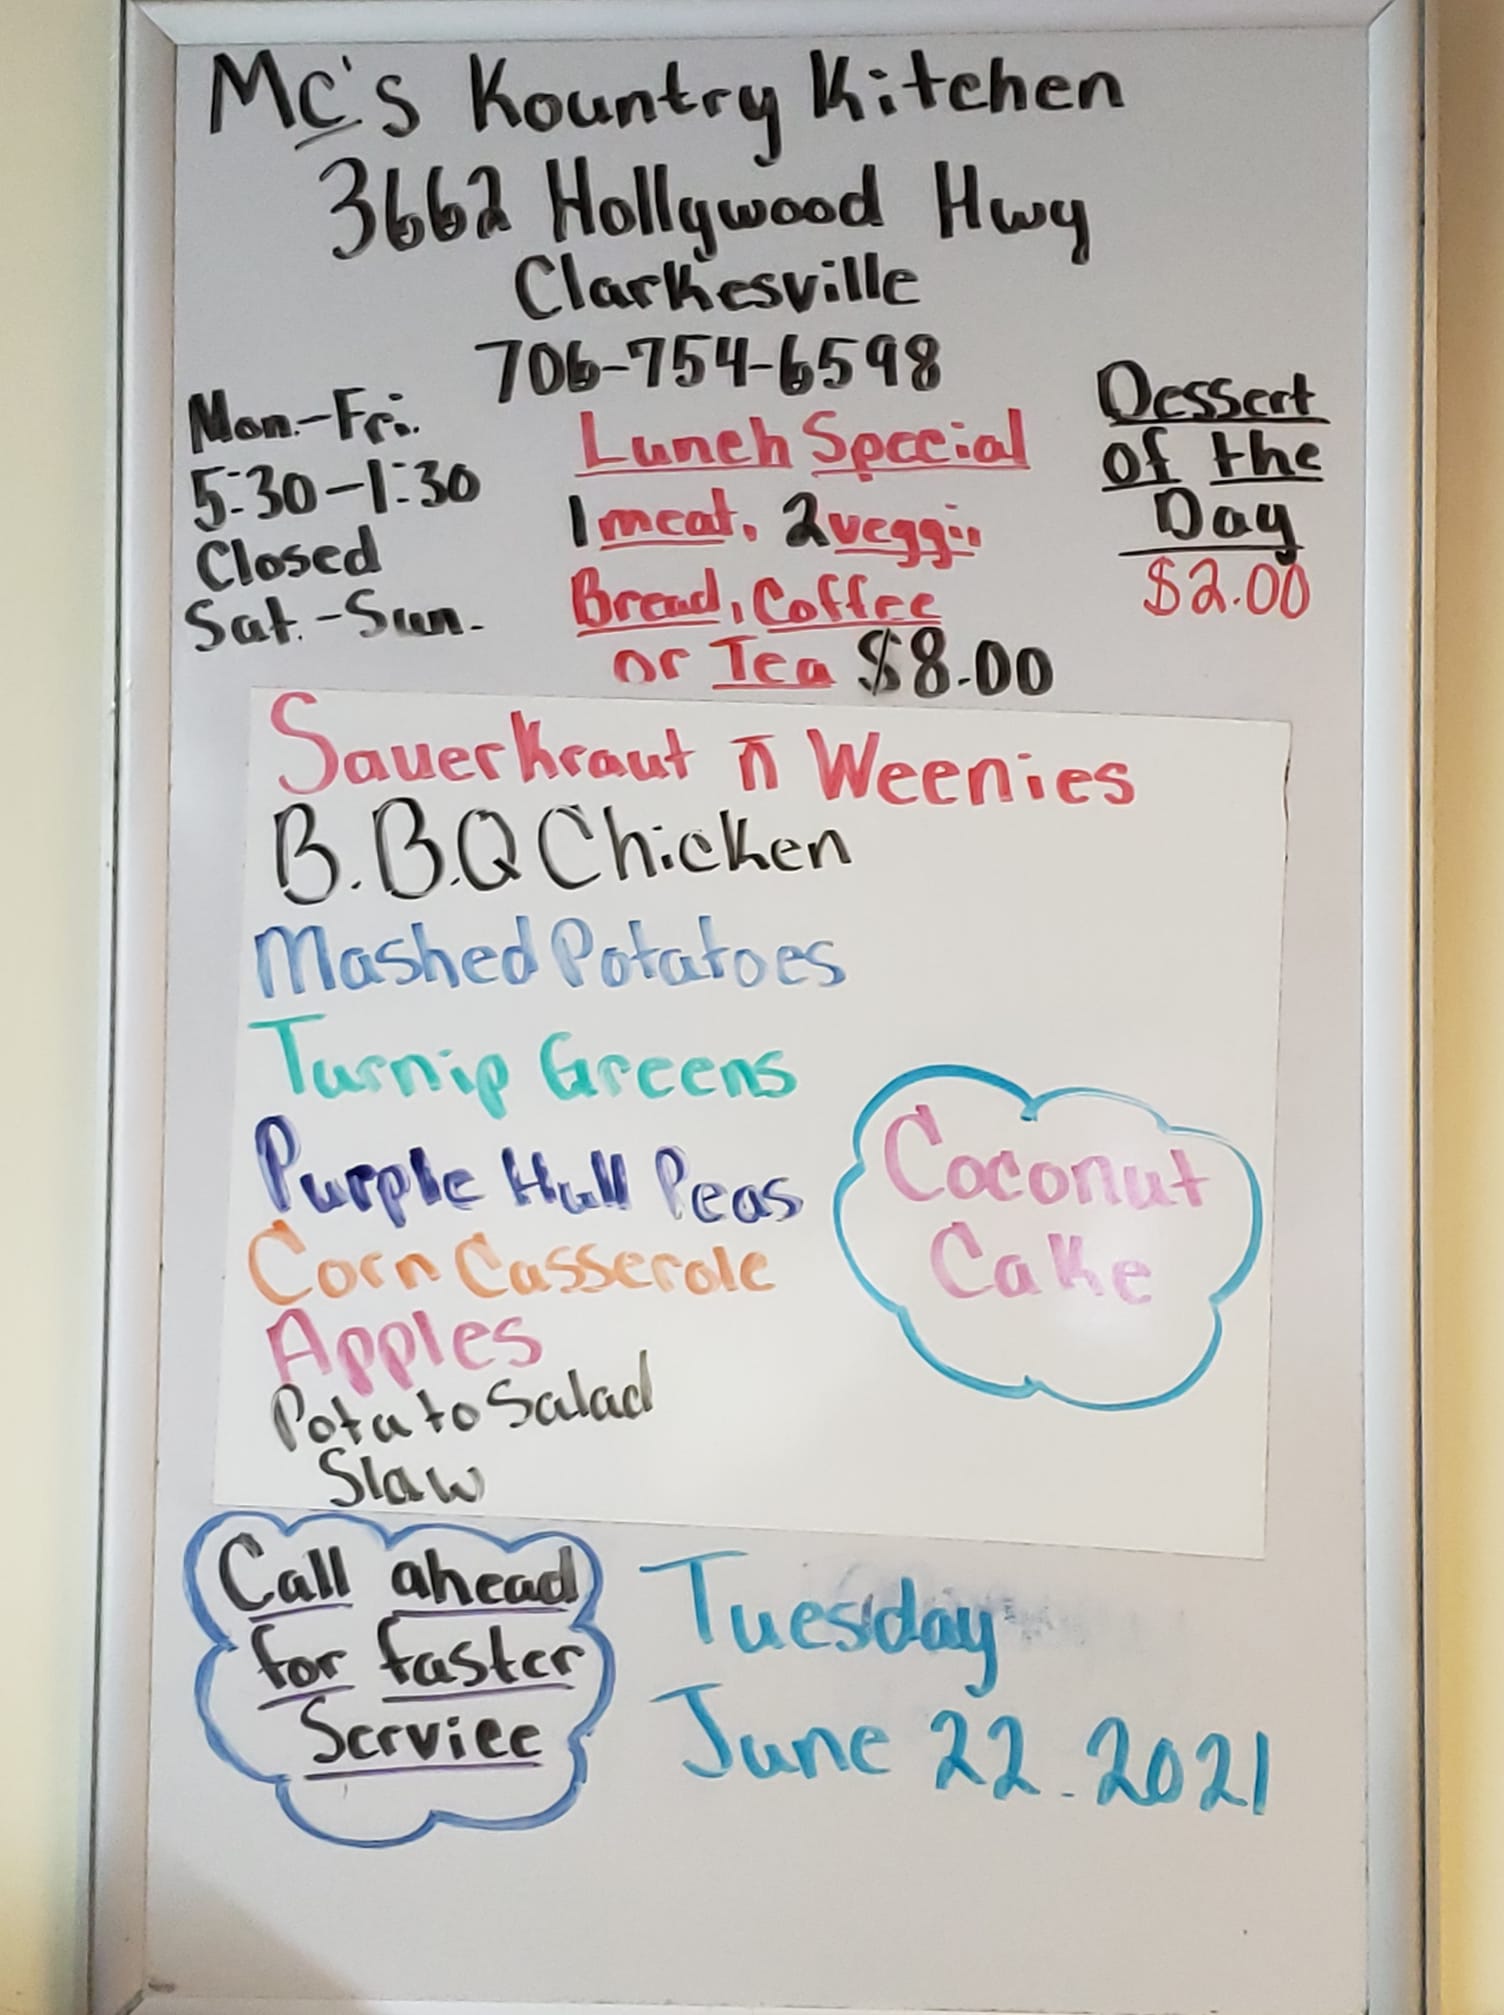 Mc's Kountry Kitchen
3662 Hollywood Hwy
Clarkesville
706-754-6598
Mon.-Fri.
5:30-1:30
Closed
Sat.-Sun.
Lunch Special
1 meat, 2 veggies
Bread, Coffee
or Tea $8.00
Dessert
of the
Day
$2.00
Sauerkraut n Weenies
B.B.Q Chicken
Mashed Potatoes
Turnip Greens
Purple Hull Peas
Corn Casserole
Apples
Potato Salad
Slaw
Coconut
Cake
Call ahead
for faster
Service
Tuesday
June 22. 2021